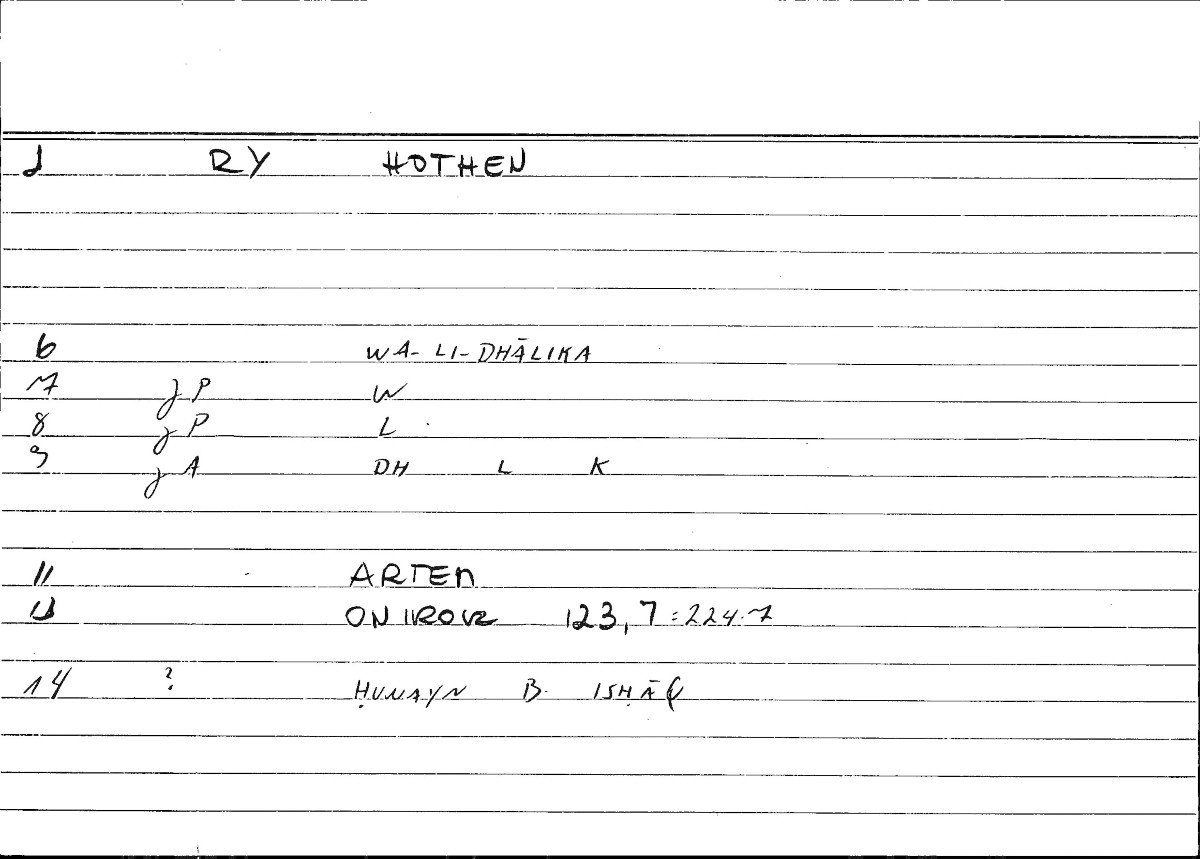 1 RY HOTHEN
6 WA-LI-DHĀLIKA
7 γ P W
8 γ P L
9 γ A DH L K
11 ARTEM
ONIROCR 123,7 = 224.7
14 ? ḤUNAYN B. ISḤĀQ